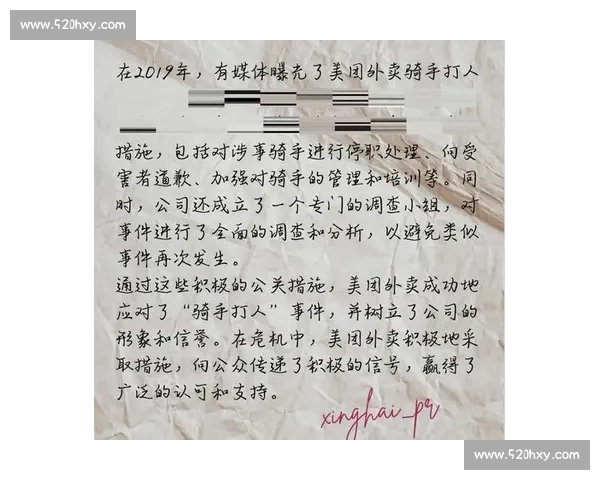 www.520hxy.com
在2019年，有媒体曝光了美团外卖骑手打人
措施，包括对涉事骑手进行停职处理、向受
害者道歉、加强对骑手的管理和培训等。同
时，公司还成立了一个专门的调查小组，对
事件进行了全面的调查和分析，以避免类似
事件再次发生。
通过这些积极的公关措施，美团外卖成功地
应对了“骑手打人”事件，并树立了公司的
形象和信誉。在危机中，美团外卖积极地采
取措施，向公众传递了积极的信号，赢得了
广泛的认可和支持。
xinghai_pr
www.520hxy.com